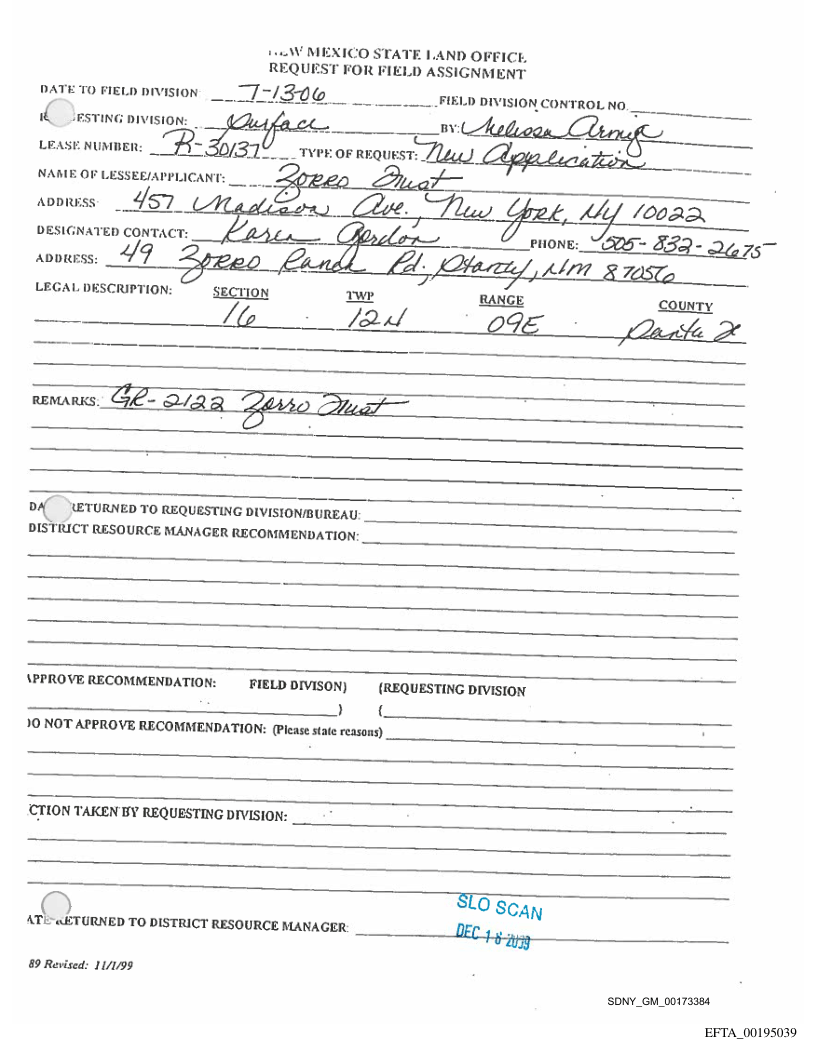 NEW MEXICO STATE LAND OFFICE
REQUEST FOR FIELD ASSIGNMENT
DATE TO FIELD DIVISION 7-13-06 FIELD DIVISION CONTROL NO.
ESTING DIVISION: Surface BY: Melissa Armijo
LEASE NUMBER: R-30137 TYPE OF REQUEST: New Application
NAME OF LESSEE/APPLICANT: Zorro Trust
ADDRESS 457 Madison Ave., New York, NY 10022
DESIGNATED CONTACT: Karen Gordon PHONE: 505-832-2675
ADDRESS: 49 Zorro Ranch Rd., Stanley, NM 87056
LEGAL DESCRIPTION: SECTION TWP RANGE COUNTY
16 12N 09E Santa Fe
REMARKS: GR-2122 Zorro Trust
DA RETURNED TO REQUESTING DIVISION/BUREAU:
DISTRICT RESOURCE MANAGER RECOMMENDATION:
APPROVE RECOMMENDATION: FIELD DIVISON) (REQUESTING DIVISION
) (
DO NOT APPROVE RECOMMENDATION: (Please state reasons)
CTION TAKEN BY REQUESTING DIVISION:
SLO SCAN
ATE RETURNED TO DISTRICT RESOURCE MANAGER:
DEC 16
89 Revised: 11/1/99
SDNY_GM_00173384
EFTA_00195039